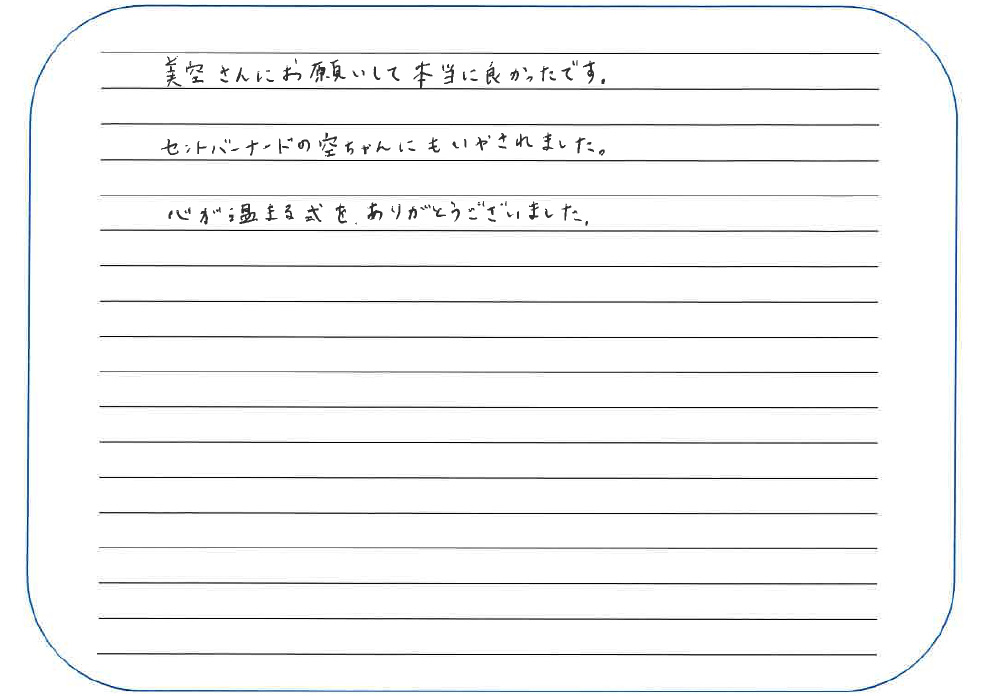 美空さんにお願いして本当に良かったです。
セントバーナードの空ちゃんにもいやされました。
心が温まる式を、ありがとうございました。